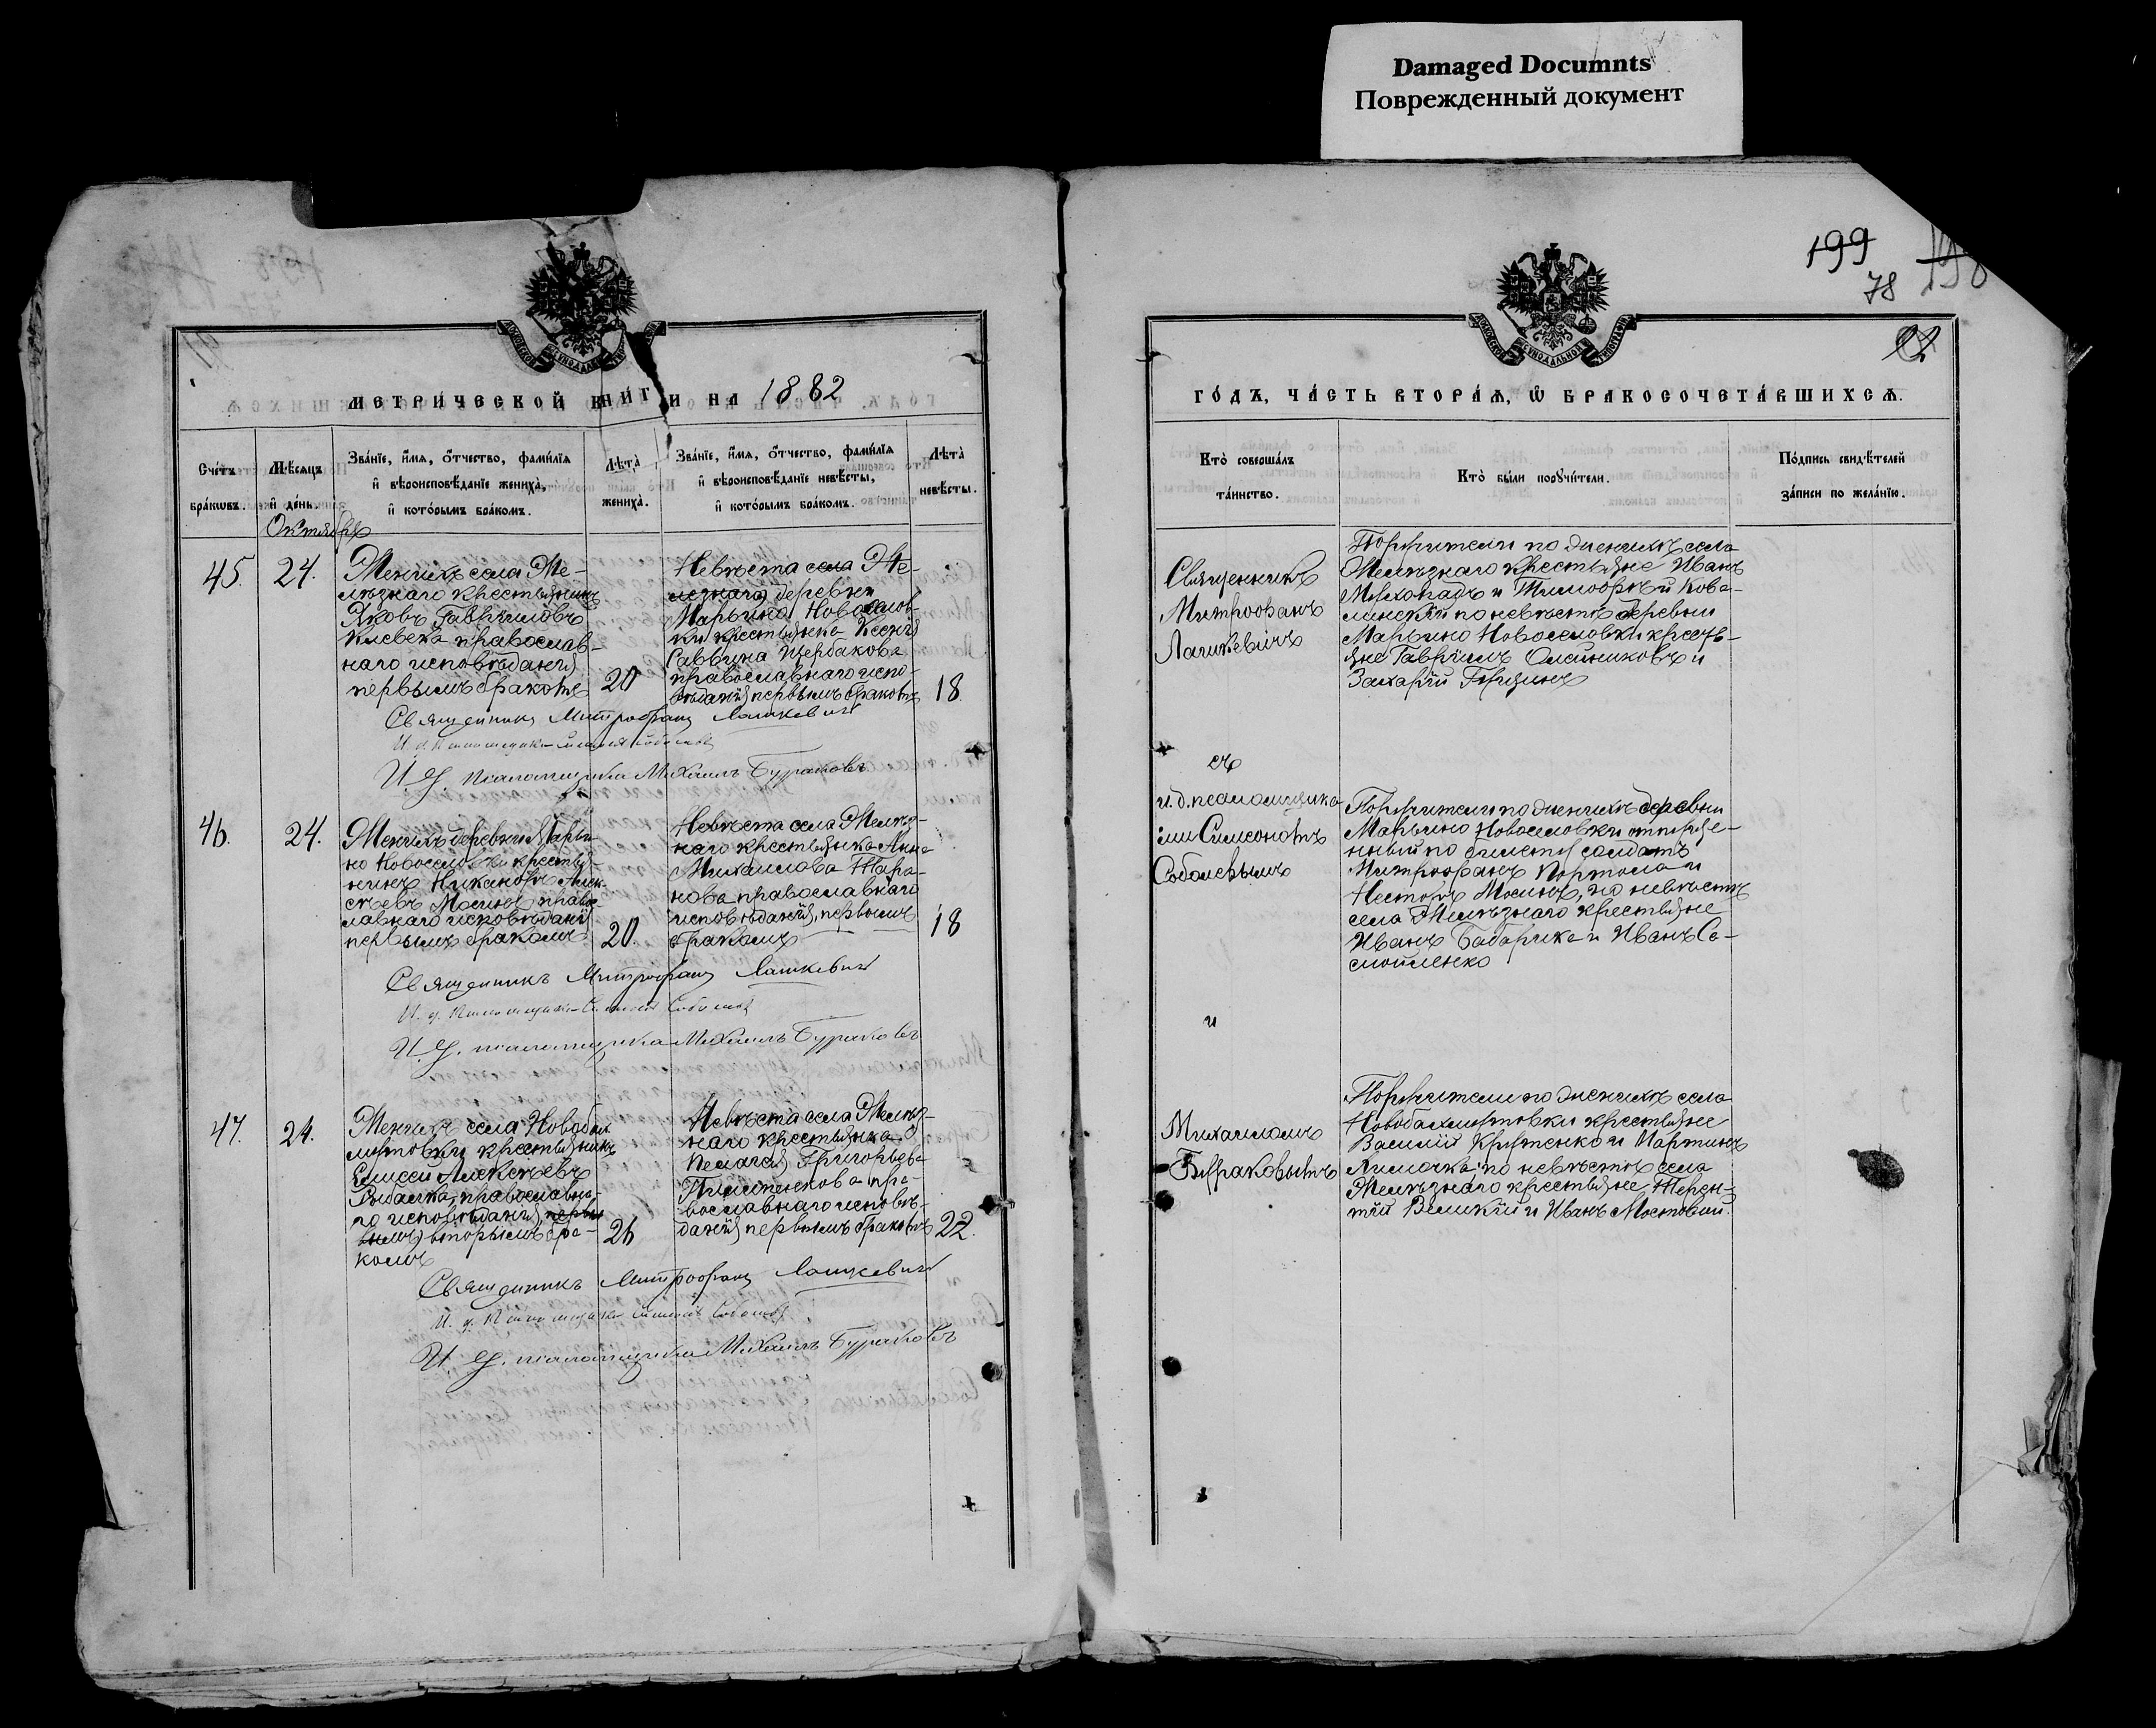 Damaged Documnts
Поврежденный документ
199
78
МОСКОВСКОЙ СѴНОДАЛЬНОЙ ТИПОГРАФІИ
МЕТРИ́ЧЕСКОЙ КНИ́ГИ НА 1882
Сче́тъ бра́кѡвъ.
Мѣ́сяцъ и҆ де́нь.
Зва́нїе, и҆́мя, ѻ҆́тчество, фами́лїя и҆ вѣроисповѣ́данїе жениха̀, и҆ кото́рымъ бра́комъ.
Лѣ́та̀ жениха̀.
Зва́нїе, и҆́мя, ѻ҆́тчество, фами́лїя и҆ вѣроисповѣ́данїе невѣ́сты, и҆ кото́рымъ бра́комъ.
Лѣ́та̀ невѣ́сты.
Октября
45.
24.
Женихъ села Же-
лѣзнаго крестьянинъ
Яковъ Гавриловъ
Клевека православ-
наго исповѣданія
первымъ бракомъ
20
Невѣста села Же-
лезнаго деревни
Марьино Новоселов-
ки крестьянка Ксенія
Саввина Щербакова
православнаго испо-
вѣданія первымъ бракомъ
18.
Священникъ Митрофанъ Лашкевичъ
И. д. Псаломщика Симеонъ Соболевъ
И. д. псаломщика Михаилъ Бураковъ
46.
24.
Женихъ деревни Марьи-
но Новоселовки крестья-
нинъ Никаноръ Алек-
сѣевъ Мосинъ, правос-
лавнаго исповѣданія
первымъ бракомъ
20.
Невѣста села Желѣз-
наго крестьянка Анна
Михаилова Тара-
нова православнаго
исповѣданія, первымъ
бракомъ
18
Священникъ Митрофанъ Лашкевичъ
И. д. Псаломщика Симеонъ Соболевъ
И. д. псаломщика Михаилъ Бураковъ
47.
24.
Женихъ села Новобах-
мутовки крестьянинъ
Елисей Алексѣевъ
Рыбалка, православна-
го исповѣданія, первы
вымъ) вторымъ бра-
комъ
26
Невѣста села Желѣз-
наго крестьянка
Пелагея Григорьева
православнаго исповѣ-
данія первымъ бракомъ
22.
Священникъ Митрофанъ Лашкевичъ
И. д. Псаломщика Симеонъ Соболевъ
И. д. псаломщика Михаилъ Бураковъ
МОСКОВСКОЙ СѴНОДАЛЬНОЙ ТИПОГРАФІИ
ГО́ДЪ, ЧА́СТЬ ВТОРА́Ѧ, Ѽ БРАКОСОЧЕТА́ВШИХСѦ.
Кто̀ соверша́лъ та́инство.
Кто̀ бы́ли порꙋчи́тели.
По́дпись свидѣ́телей за́писи по жела́нїю.
Священникъ
Митрофанъ
Лашкевичъ
съ
и. д. псаломщика
ми Симеономъ
Соболевымъ
и
Михаиломъ
Бураковымъ
Поручители по женихѣ села
Желѣзнаго крестьяне Иванъ
Мухопадъ и Тимофѣй Кова-
линскій по невѣстѣ деревни
Марьино Новоселовки кресть-
яне Гавріилъ Олейниковъ и
Захарій
Поручители по женихѣ деревни
Марьино Новоселовки отпуще-
нный по билету солдатъ
Митрофанъ Портола и
Несторъ Мосинъ, по невѣстѣ
села Желѣзнаго крестьяне
Иванъ Бабарика и Иванъ Са-
мойленко
Поручители по женихѣ села
Новобахмутовки крестьяне
Василій Крутенко и Мартинъ
по невѣстѣ села
Желѣзнаго крестьяне Терен-
тій Великій и Иванъ Мостовый.